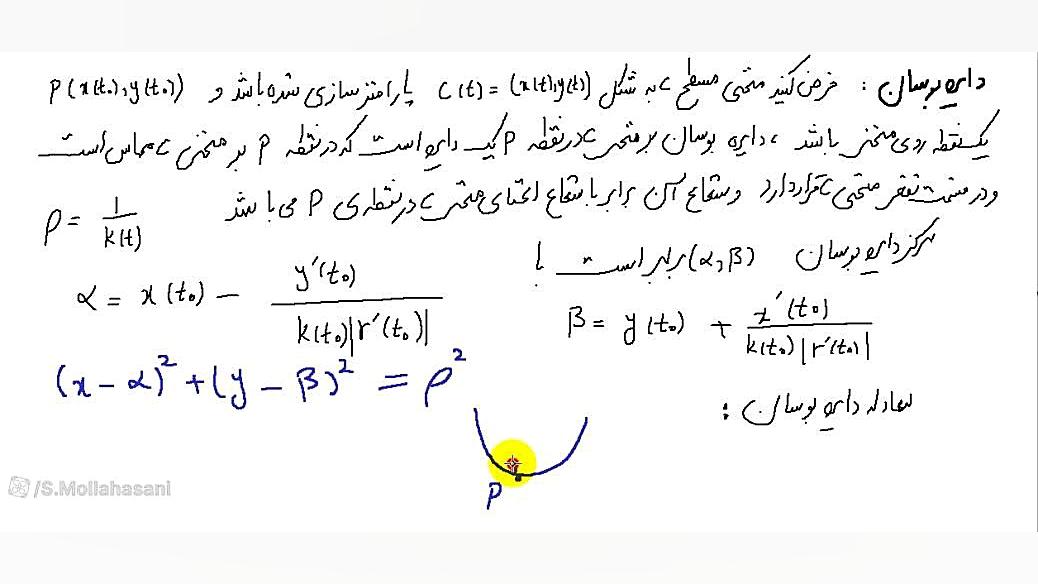 دایره بوسان : فرض کنید منحنی مسطح c به شکل C(t) = (x(t), y(t)) پارامتر سازی شده باشد و P(x(t₀), y(t₀))
یک نقطه روی منحنی باشد ، دایره بوسان بر منحنی c در نقطه P یک دایره است که در نقطه P بر منحنی c مماس است
و در سمت تقعر منحنی c قرار دارد و شعاع آن برابر با شعاع انحنای منحنی c در نقطه ی P می باشد
ρ = 1/k(t)
مرکز دایره بوسان (α, β) برابر است با
α = x(t₀) − y′(t₀)/(k(t₀)|r′(t₀)|)
β = y(t₀) + x′(t₀)/(k(t₀)|r′(t₀)|)
معادله دایره بوسان :
(x − α)² + (y − β)² = ρ²
P
/S.Mollahasani